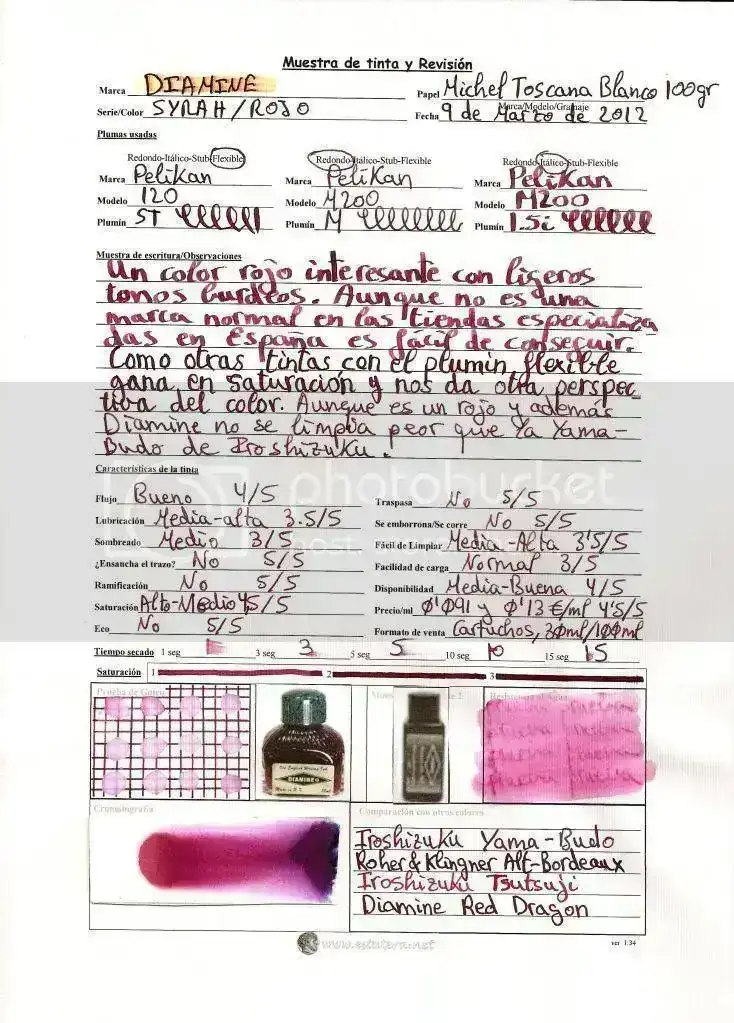 Muestra de tinta y Revisión
Marca DIAMINE Papel Michel Toscana Blanco 100gr
Marca/Modelo/Gramaje
Serie/Color SYRAH/ROJO Fecha 9 de Marzo de 2012
Plumas usadas
Redondo-Itálico-Stub-Flexible Redondo-Itálico-Stub-Flexible Redondo-Itálico-Stub-Flexible
Marca Pelikan Marca Pelikan Marca Pelikan
Modelo 120 Modelo M200 Modelo M200
Plumín ST Plumín M Plumín 1.5i
Muestra de escritura/Observaciones
Un color rojo interesante con ligeros
tonos burdeos. Aunque no es una
marca normal en las tiendas especializa
das en España es fácil de conseguir.
Como otras tintas con el plumin flexible
gana en saturación y nos da otra perspec_
tiva del color. Aunque es un rojo y además
Diamine no se limpia peor que Ya Yama-
Budo de Iroshizuku!
photobucket
Características de la tinta
Flujo Bueno 4/5 Traspasa No 5/5
Lubricación Media-alta 3.5/5 Se emborrona/Se corre No 5/5
Sombreado Medio 3/5 Fácil de Limpiar Media-Alta 3'5/5
¿Ensancha el trazo? No 5/5 Facilidad de carga Normal 3/5
Ramificación No 5/5 Disponibilidad Media-Buena 4/5
Saturación Alto-Medio 4'5/5 Precio/ml 0'091 y 0'13 €/ml 4'5/5
Eco No 5/5 Formato de venta Cartuchos, 30ml/100ml
Tiempo secado 1 seg 3 seg 3 5 seg 5 10 seg 10 15 seg 15
Saturación 1 2 3
Prueba de Goteo Resistencia al Agua
The English Writing Ink
DIAMINE
Made in U.K.
prueba prueba
prueba prueba
prueba prueba
prueba prueba
Cromatografía Comparación con otros colores
Iroshizuku Yama-Budo
Roher & Klingner Alt-Bordeaux
Iroshizuku Tsutsuji
Diamine Red Dragon
ver 1.34